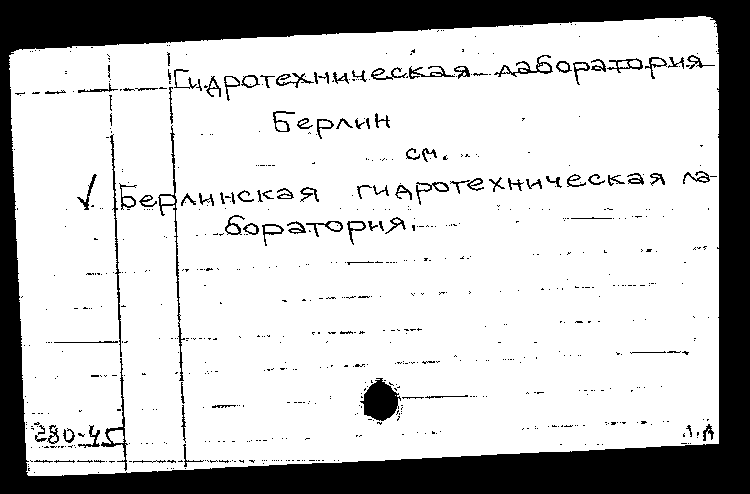 Гидротехническая лаборатория
Берлин
см.
✓ Берлинская гидротехническая ла-
боратория.
280-45